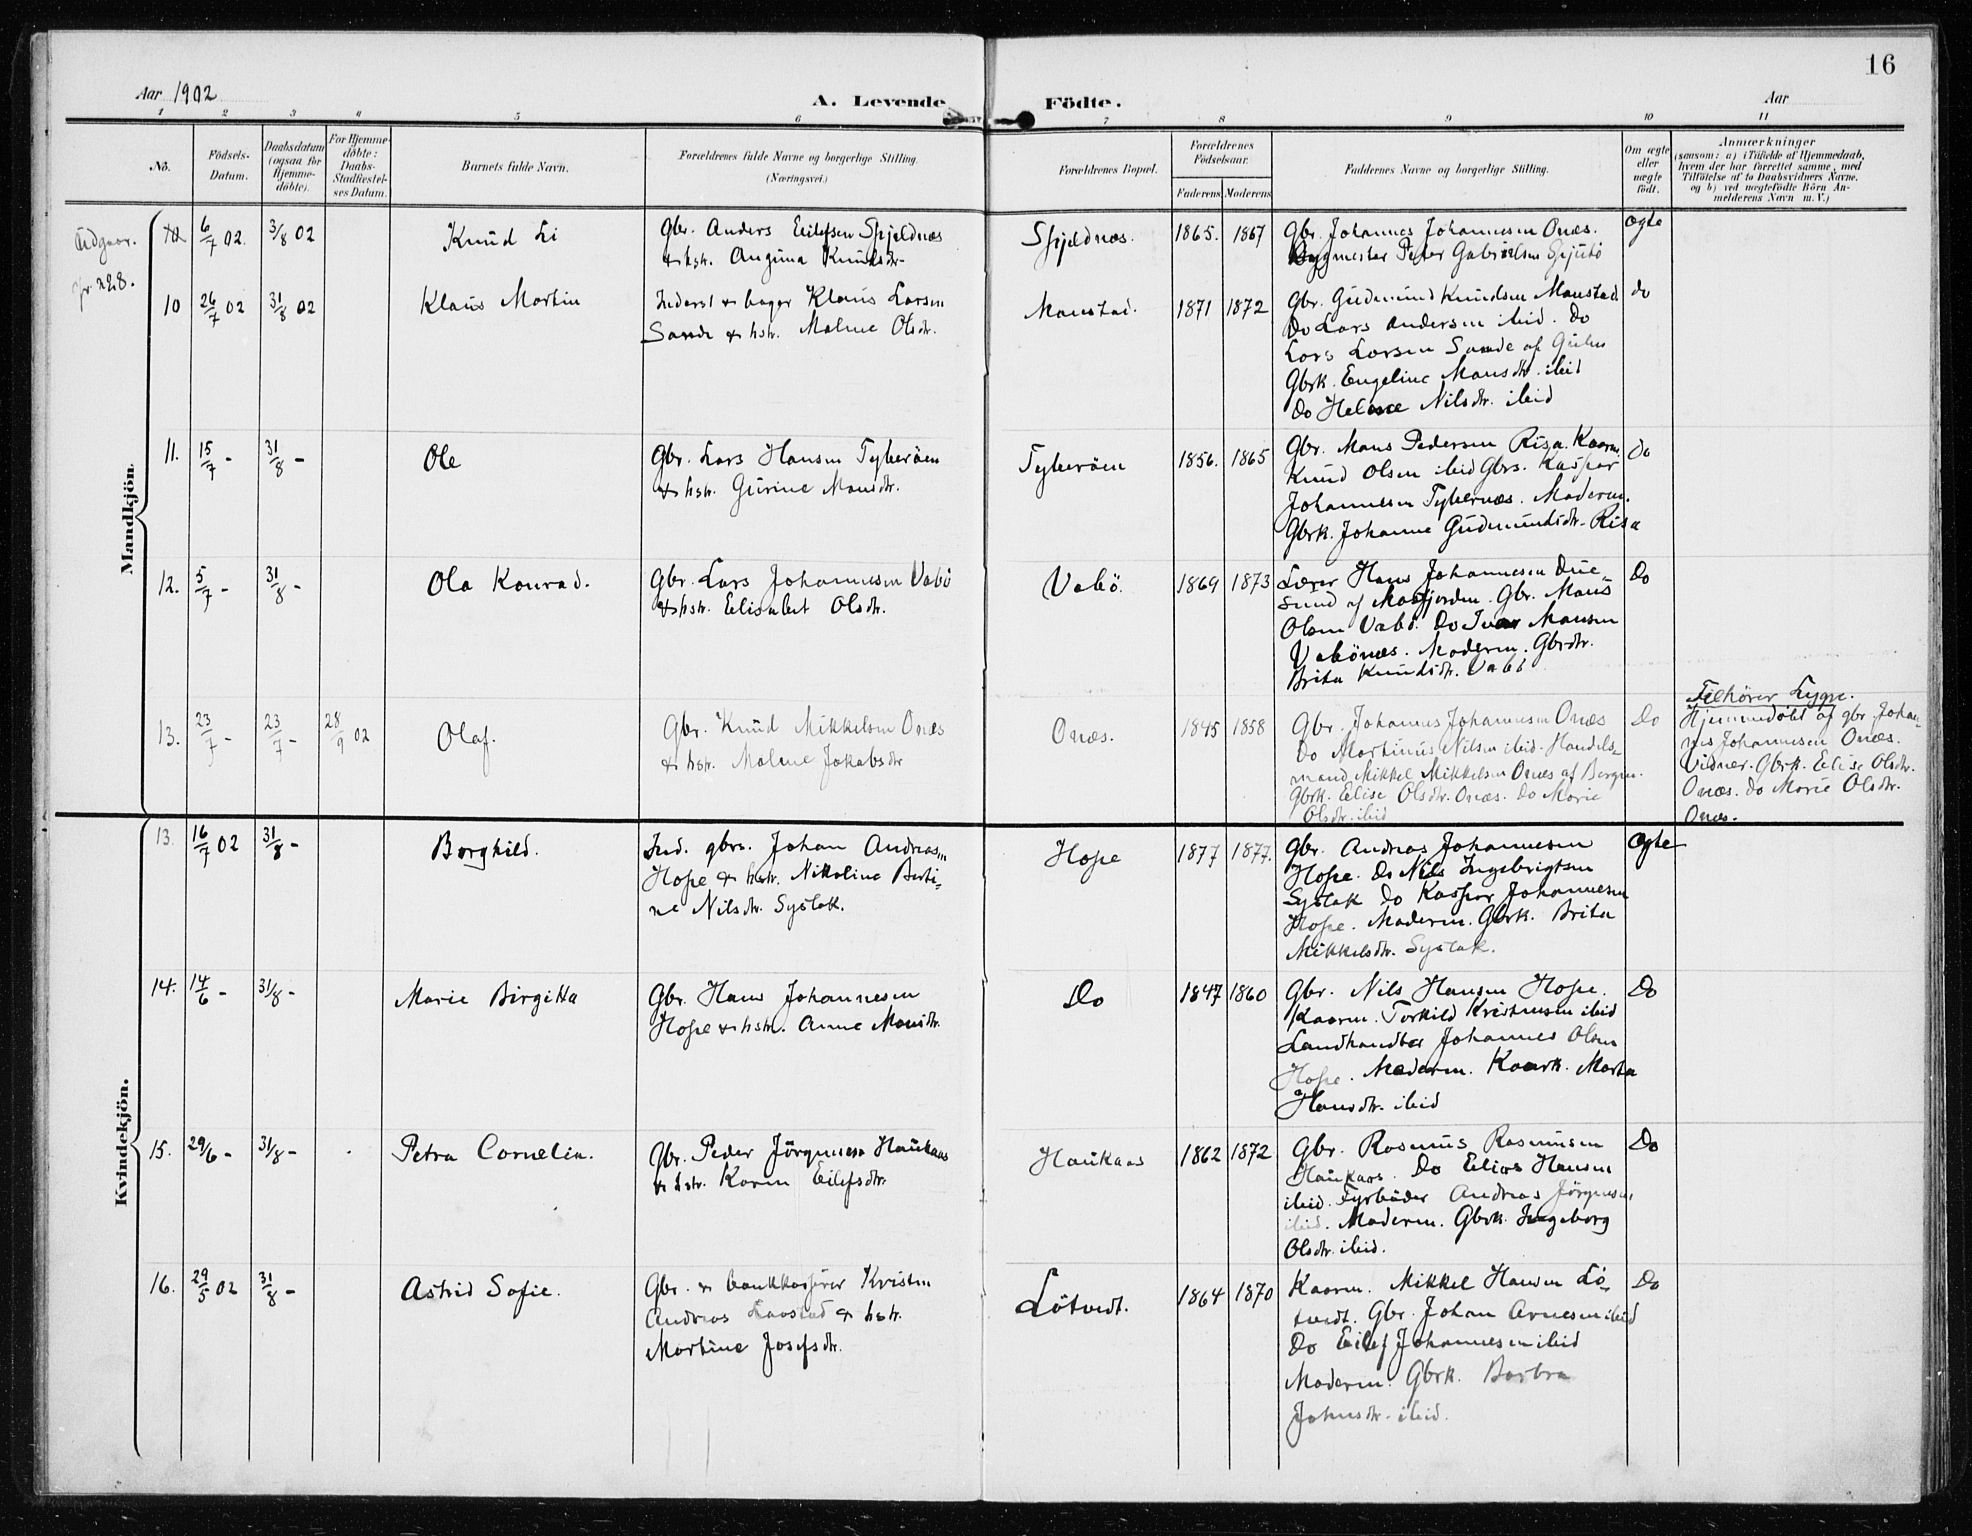 16
Aar 1902
A. Levende Födte.
Aar
1 2 3 4 5 6 7 8 9 10 11
No.
Födsels-
Datum.
Daabsdatum
(ogsaa for
Hjemme-
döbte).
For Hjemme-
döbte:
Daabs-
Stadfæstel-
ses Datum.
Barnets fulde Navn.
Forældrenes fulde Navne og borgerlige Stilling.
(Næringsvei.)
Forældrenes Bopæl.
Forældrenes
Födselsaar.
Faderens Moderens
Faddernes Navne og borgerlige Stilling.
Om ægte
eller
uægte
født.
Anmærkninger
(saasom: a) i Tilfælde af Hjemmedaab,
hvem der har forrettet samme, med
Tilföielse af to Daabsvidners Navne,
og b) ved uægtefödte Börn An-
melderens Navn m. V.)
Mandkjön.
Udgaar.
6/7 02. 3/8 02
Knud Li
Gbr. Anders Eilefsen Spjeldnæs
& hstr. Anguna Knudsdr.
Spjeldnæs.
1865. 1867
Gbr. Johannes Johannesen Onæs.
Bygmester Peter Gabrielsen
ægte
10 26/7 02 31/8 02
Klaus Martin
Inderst & bager Klaus Larsen
Sande & hstr. Malene Olsdr.
Manstad.
1871 1872
Gbr. Gudmund Knudsen Manstad
Do Lars Andersen ibid. Do
Lars Larsen Sande af Gulen
Gbrk. Engeline Mansdtr. ibid
Do Helene Nilsdtr. ibid
do
11. 15/7 - 31/8 -
Ole
Gbr. Lars Hansen Tyberöen
& hstr. Gurine Mansdtr.
Tyberöen
1856. 1865
Gbr. Mons Pedersen Risa. Kaarm.
Knud Olsen ibid Gbrs. Kaspar
Johannesen Tybernæs. Moderen.
Gbrk. Johanne Gudmundsdtr. Risa
Do
12. 5/7 - 31/8 -
Ola Konrad.
Gbr. Lars Johannesen Vabö
& hstr. Elisabet Olsdtr.
Vabö.
1869 1873
Lærer Hans Johannesen Due-
sund af Masfjorden. Gbr. Mons
Olsen Vabö. Do Ivar Mansen
Vabönæs. Moderen. Gbrdtr.
Brita Knudsdtr. Vabö
Do
13. 23/7 - 23/7 - 28/9 02
Olaf.
Gbr. Knud Mikkelsen Onæs
& hstr. Malene Jakobsdtr
Onæs.
1845 1858
Gbr. Johannes Johannesen Onæs
Do Martinus Nilsen ibid. Handels-
mand Mikkel Mikkelsen Onæs af Bergen.
Gbrk. Elise Olsdtr. Onæs. Do Marie
Olsdtr. ibid
Do
Tilhörer Lygre.
Hjemmedöbt af gbr. Johan-
nes Johannesen Onæs.
Vidner. Gbrk. Elise Olsdtr.
Onæs. Do Marie Olsdtr.
Onæs.
Kvindekjön.
13. 16/7 02 31/8 -
Borghild.
Ind. gbrs. Johan Andreas
Hope & hstr. Nikoline Berti-
ne Nilsdtr. Syslak.
Hope
1877 1877.
Gbr. Andreas Johannesen
Hope. Do Nils Ingebrigtsen
Syslak Do Kaspar Johannesen
Hope. Moderen. Gbrk. Brita
Mikkelsdtr. Syslak.
ægte
14. 14/6 - 31/8 -
Marie Birgitta
Gbr. Hans Johannesen
Hope & hstr. Anne Monsdtr.
Do
1847 1860
Gbr. Nils Hansen Hope.
Kaarm. Torkild Kristensen ibid
Landhandler Johannes Olsen
Hope. Moderen. Kaark. Marta
Hansdtr. ibid
Do
15. 29/6 - 31/8 -
Petra Cornelia.
Gbr. Peder Jörgensen Haukaas
& hstr. Karen Eilefsdtr.
Haukaas
1862 1872
Gbr. Rasmus Rasmusen
Haukaas. Do Elias Hansen
ibid. Fyrböder Andreas Jörgensen
ibid. Moderen. Gbrk. Ingeborg
Olsdtr. ibid.
Do
16. 29/5 02 31/8 -
Astrid Sofie.
Gbr. & bankkasserer Kristen
Andreas & hstr.
Martine Josefsdtr.
Lötvedt.
1864 1870
Kaarm. Mikkel Hansen Lö-
tvedt. Gbr. Johan Arnesen ibid
Do Eilef Johannesen ibid
Moderen. Gbrk. Barbra
Johnsdtr. ibid.
Do